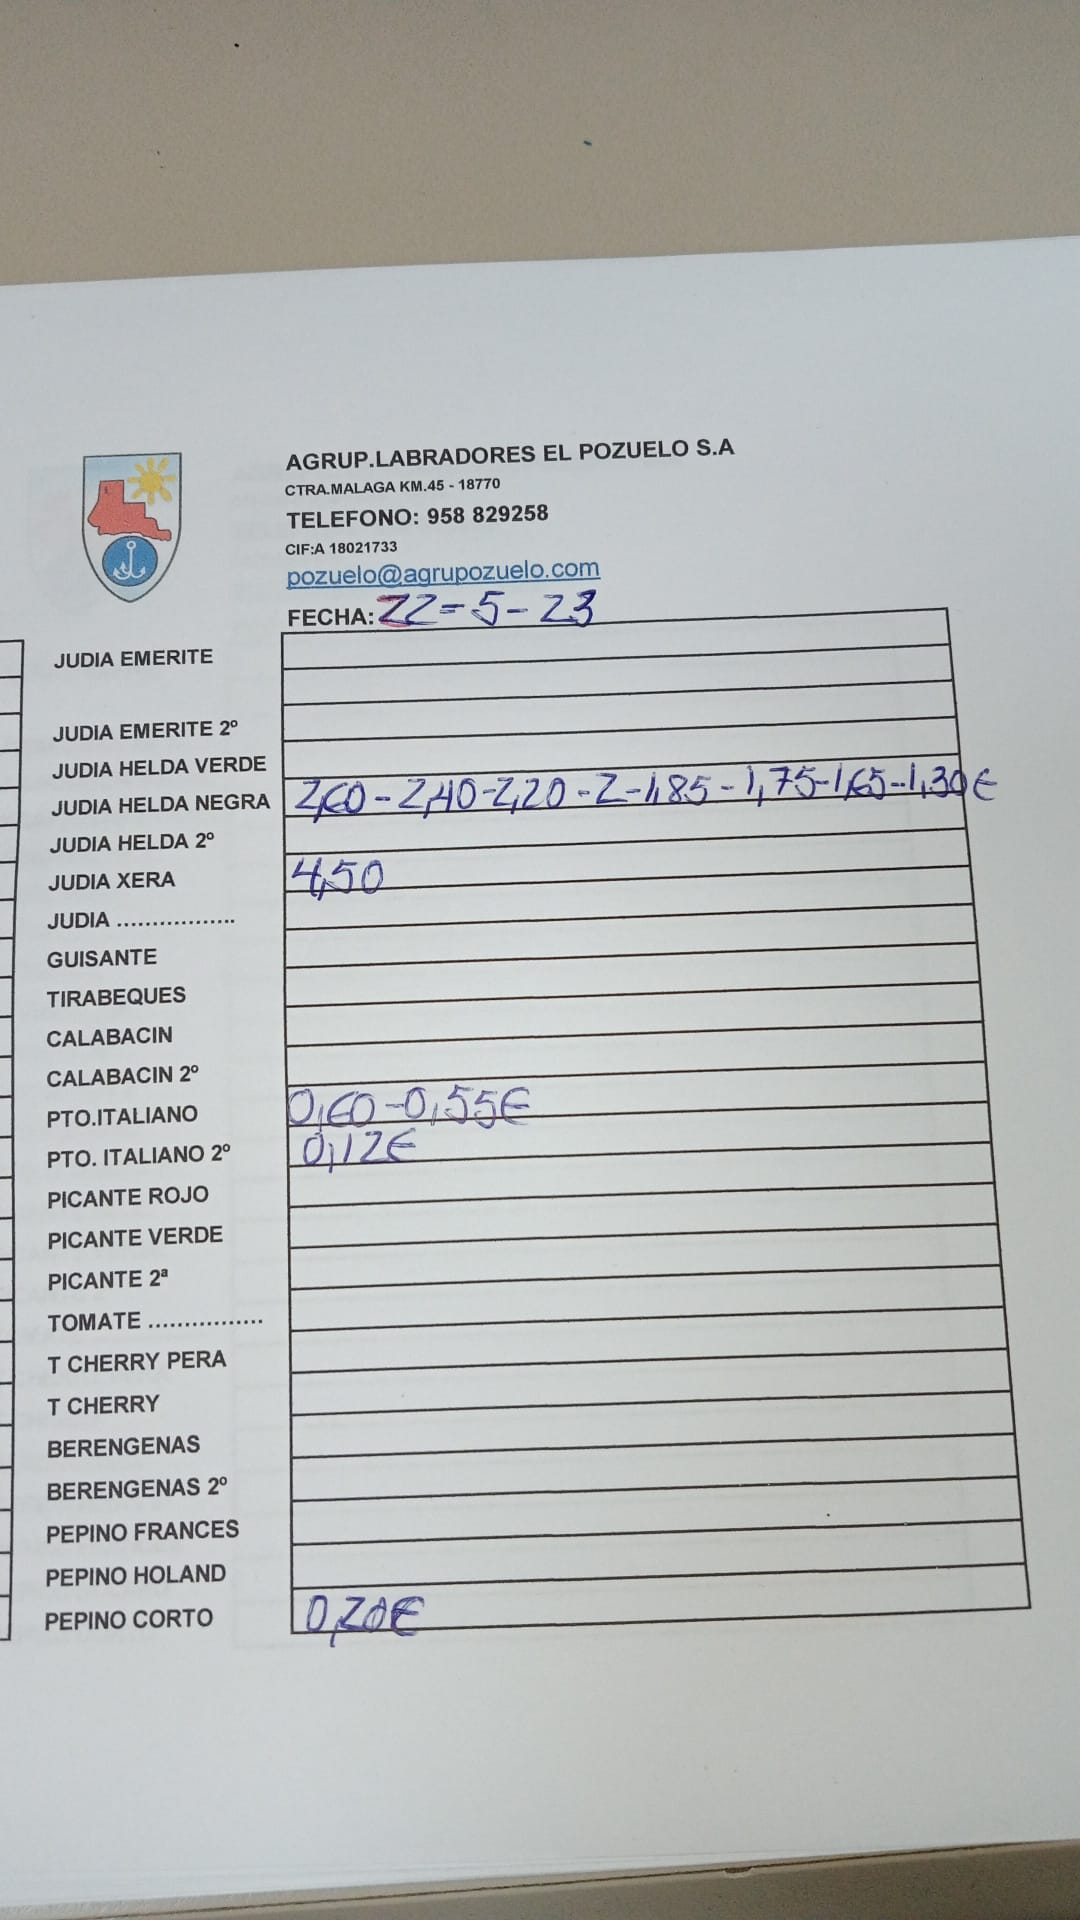 AGRUP.LABRADORES EL POZUELO S.A
CTRA.MALAGA KM.45 - 18770
TELEFONO: 958 829258
CIF:A 18021733
pozuelo@agrupozuelo.com
FECHA: 22-5-23
JUDIA EMERITE
JUDIA EMERITE 2º
JUDIA HELDA VERDE
JUDIA HELDA NEGRA 2,60-2,40-2,20-2-1,85-1,75-1,65-1,30€
JUDIA HELDA 2º
JUDIA XERA 4,50
JUDIA .................
GUISANTE
TIRABEQUES
CALABACIN
CALABACIN 2º
PTO.ITALIANO 0,60-0,55€
PTO. ITALIANO 2º 0,12€
PICANTE ROJO
PICANTE VERDE
PICANTE 2ª
TOMATE ................
T CHERRY PERA
T CHERRY
BERENGENAS
BERENGENAS 2º
PEPINO FRANCES
PEPINO HOLAND
PEPINO CORTO 0,20€